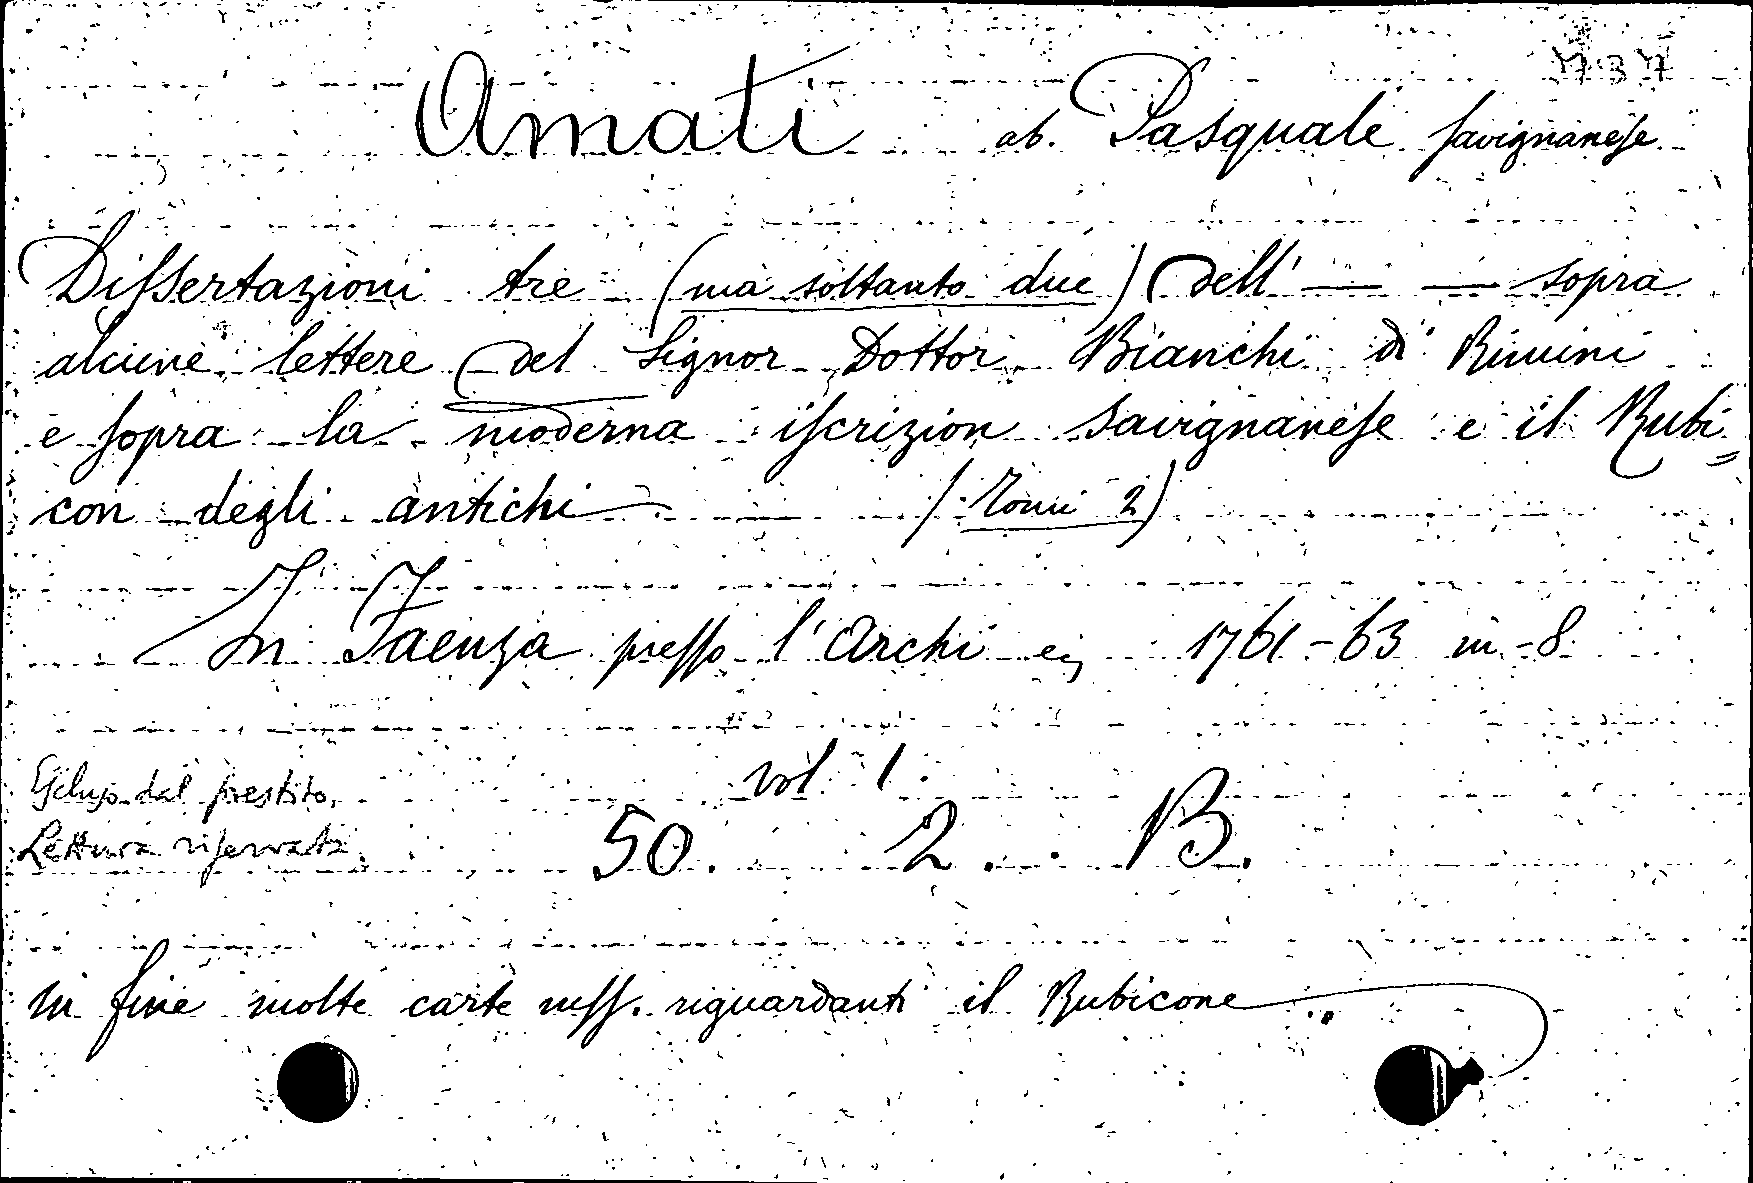 737
Amati ab. Pasquale savignanese
Dissertazioni tre (ma soltanto due) dell' — — sopra
alcune lettere del Signor Dottor Bianchi di Rimini
e sopra la moderna iscrizion savignanese e il Rubi=
con degli antichi (Tomi 2)
In Faenza presso l'Archi 1761-63 in-8
vol. 1.
Escluso dal prestito.
Lettura riservata.
50. 2. B.
In fine molte carte mss. riguardanti il Rubicone